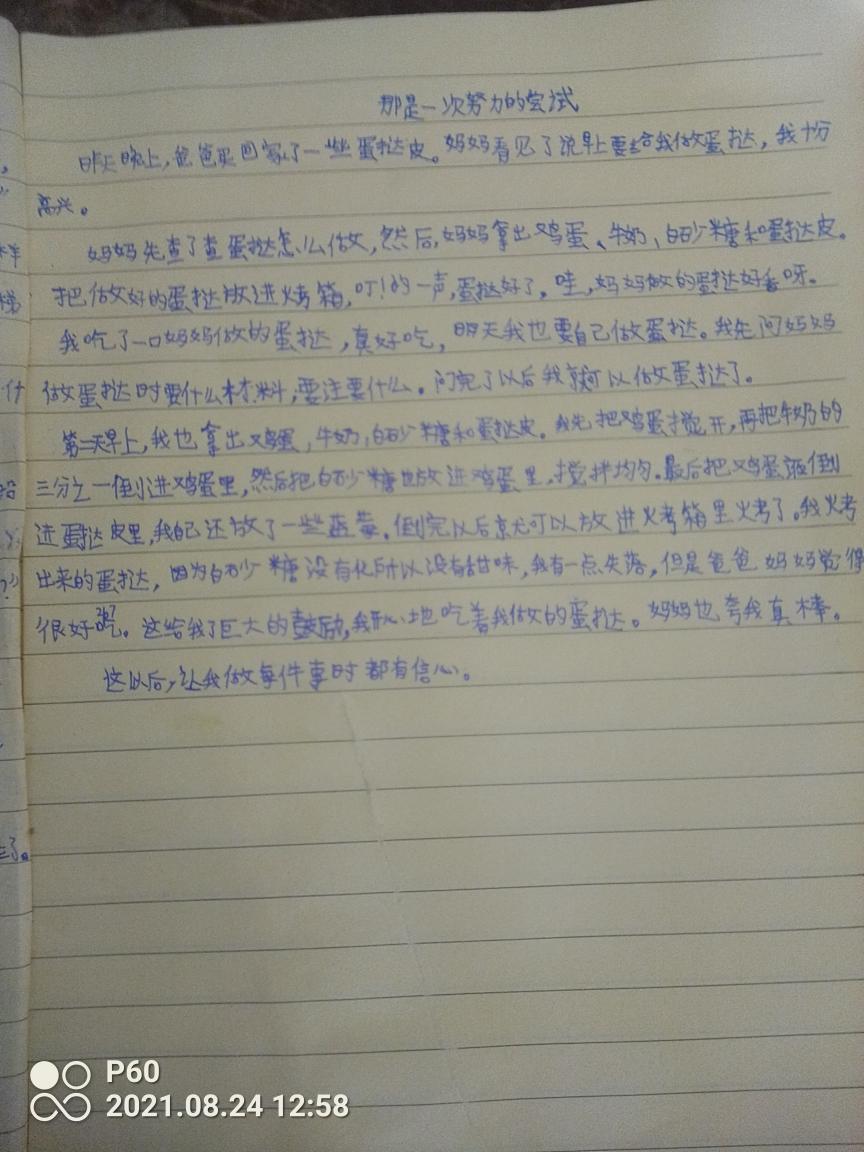 那是一次努力的尝试
昨天晚上，爸爸买回家了一些蛋挞皮。妈妈看见了说早上要给我做蛋挞，我十分
高兴。
妈妈先查了查蛋挞怎么做，然后，妈妈拿出鸡蛋、牛奶、白砂糖和蛋挞皮。
把做好的蛋挞放进烤箱，叮！的一声，蛋挞好了。哇，妈妈做的蛋挞好香呀。
我吃了一口妈妈做的蛋挞，真好吃，明天我也要自己做蛋挞。我先问妈妈
做蛋挞时要什么材料，要注要什么。问完了以后我就可以做蛋挞了。
第二天早上，我也拿出鸡蛋，牛奶，白砂糖和蛋挞皮。我先把鸡蛋搅开，再把牛奶的
三分之一倒进鸡蛋里，然后把白砂糖也放进鸡蛋里，搅拌均匀。最后把鸡蛋液倒
进蛋挞皮里，我自己还放了一些蓝莓。倒完以后就可以放进烤箱里烤了。我烤
出来的蛋挞，因为白砂糖没有化所以没有甜味，我有一点失落，但是爸爸妈妈觉得
很好吃。这给我了巨大的鼓励，我开心地吃着我做的蛋挞。妈妈也夸我真棒。
这以后，让我做每件事时都有信心。
，
样
梯
什
给
了。
P60
2021.08.24 12:58